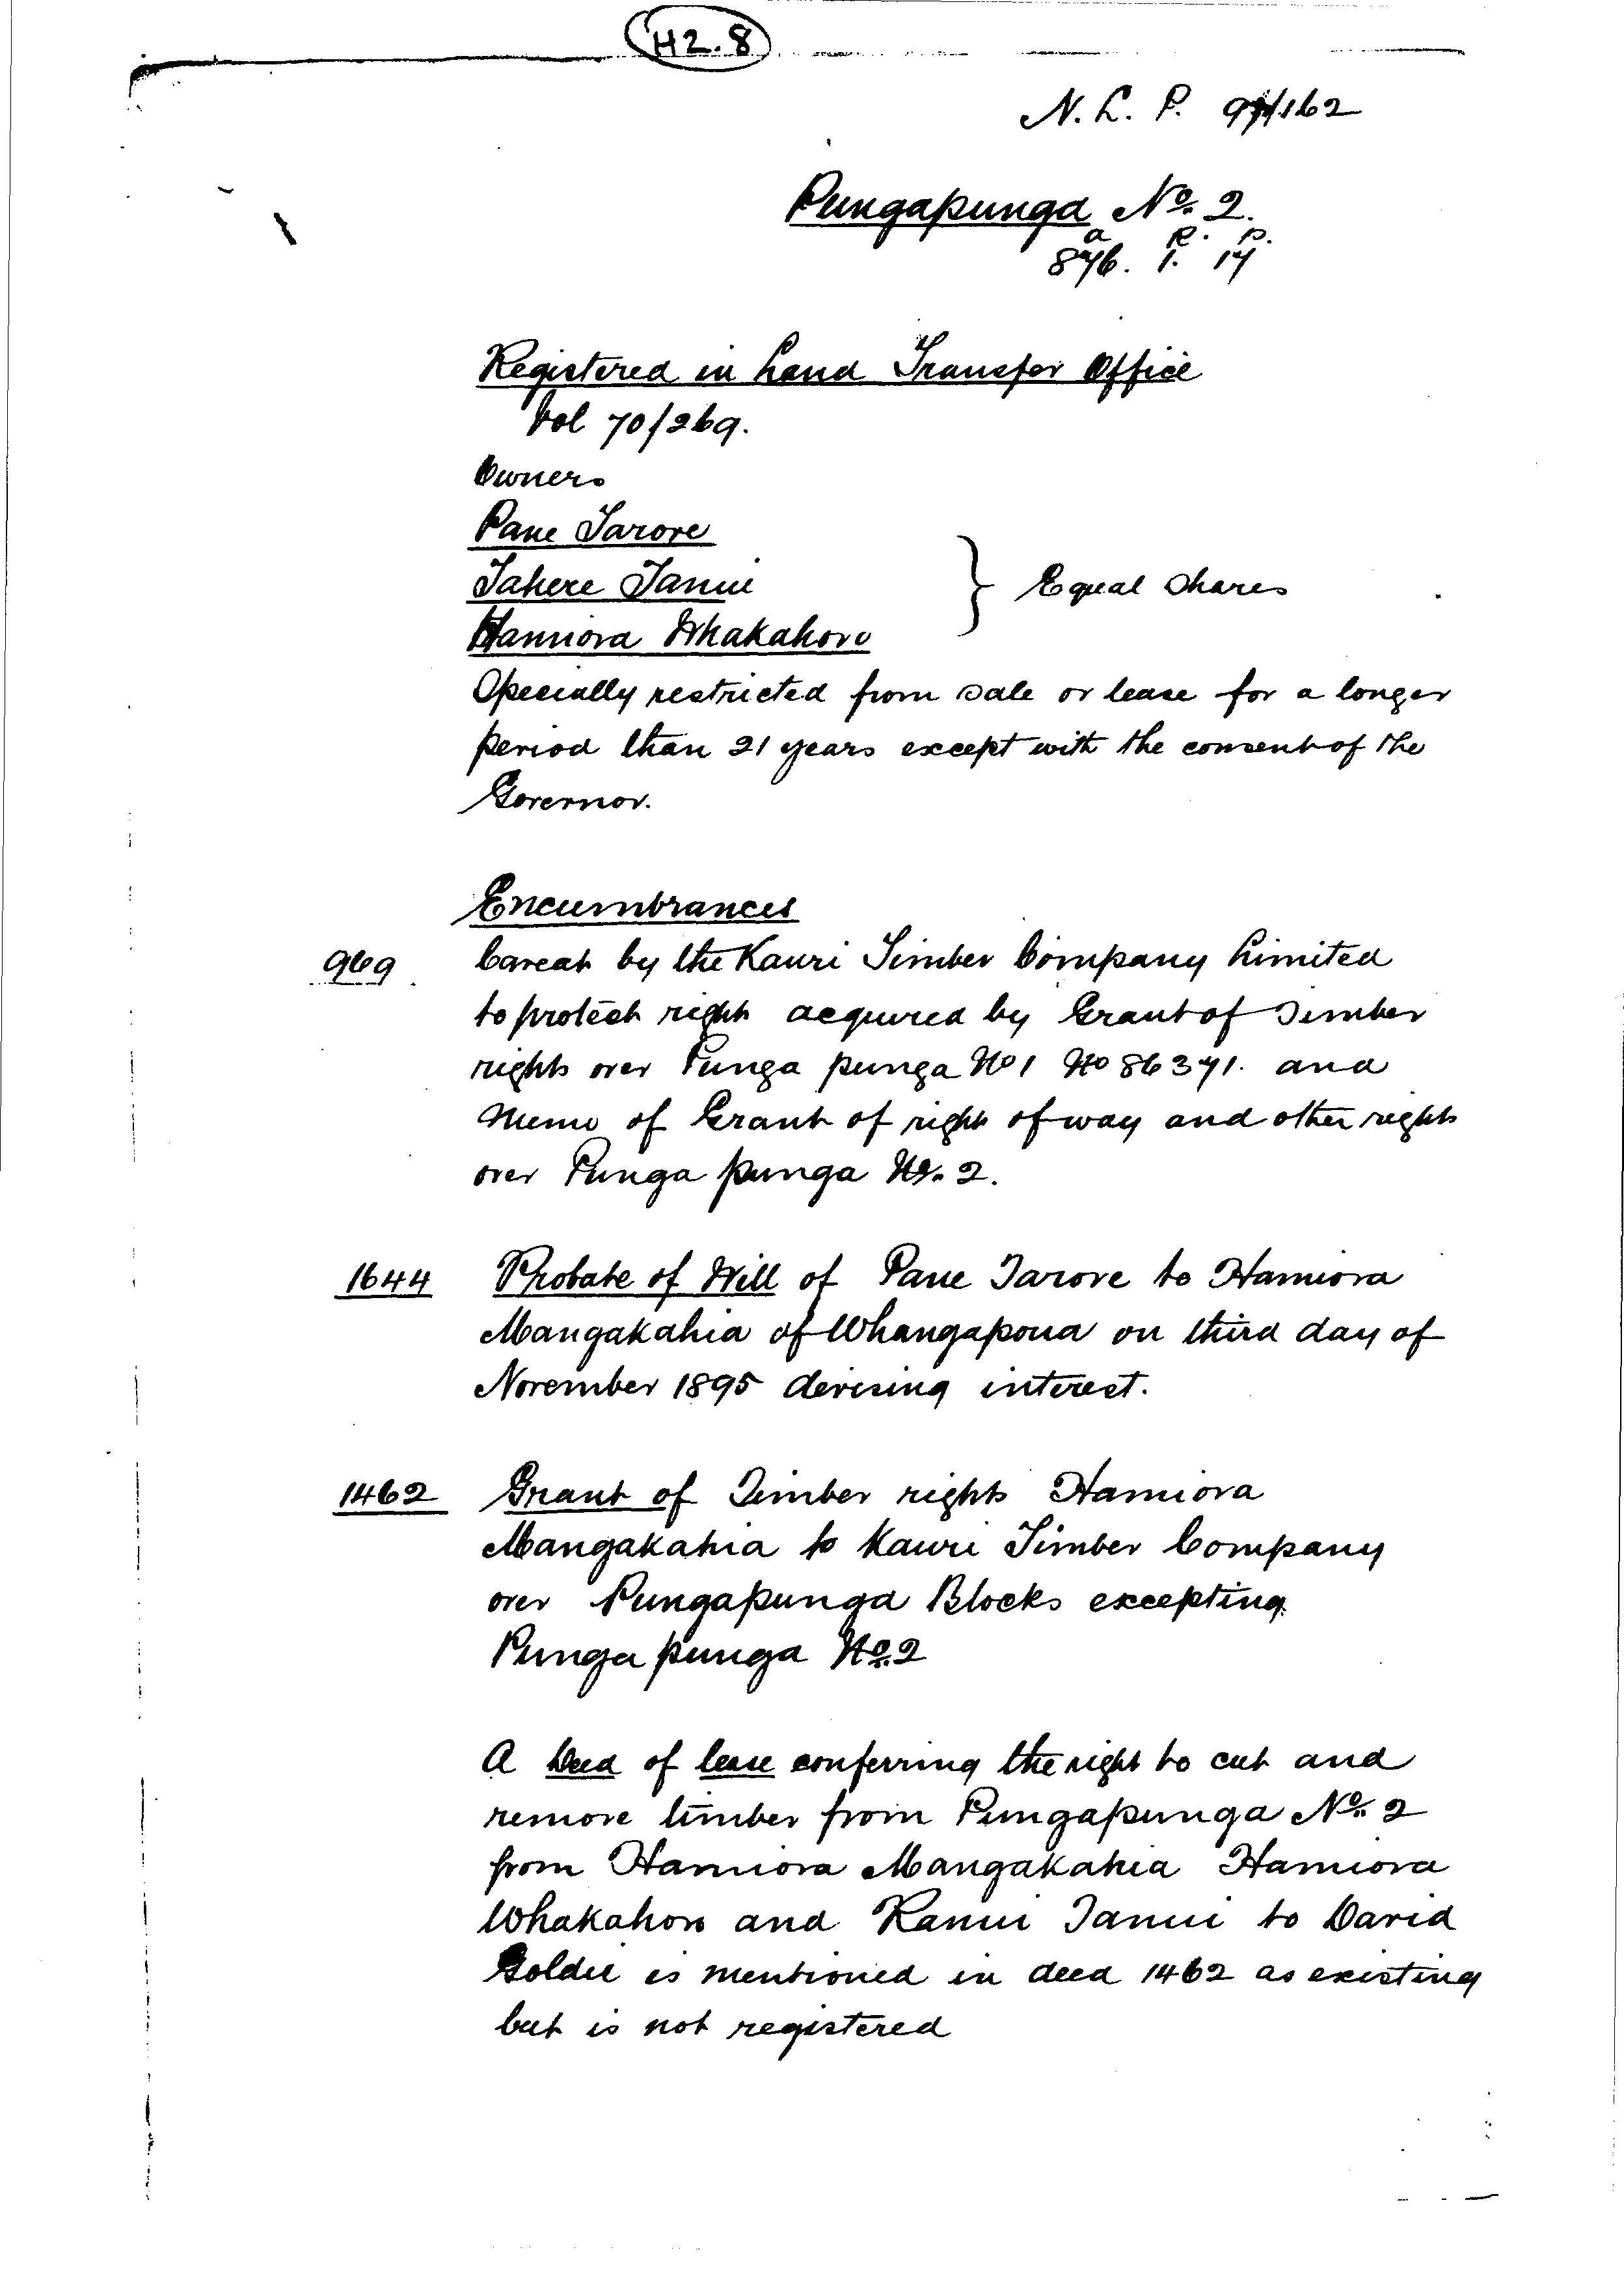 H2.8
N. L. P. 97/162
Pungapunga No. 2.
a R. p.
876. 1. 17
Registered in Land Transfer Office
Vol 70/269.
Owners
Pane Tarore
Tahere Tanui
Hamiora Whakahoro
} Equal Shares
Specially restricted from sale or lease for a longer
period than 21 years except with the consent of the
Governor.
Encumbrances
969 Caveat by the Kauri Timber Company Limited
to protect right acquired by Grant of Timber
rights over Punga punga No 1 No 86371. and
Memo of Grant of right of way and other rights
over Punga punga No. 2.
1644 Probate of Will of Pane Tarore to Hamiora
Mangakahia of Whangapoua on third day of
November 1895 devising interest.
1462 Grant of Timber rights Hamiora
Mangakahia to Kauri Timber Company
over Pungapunga Blocks excepting
Punga punga No. 2
A Deed of lease conferring the right to cut and
remove timber from Pungapunga No. 2
from Hamiora Mangakahia Hamiora
Whakahoro and Ranui Tanui to David
Goldie is mentioned in deed 1462 as existing
but is not registered